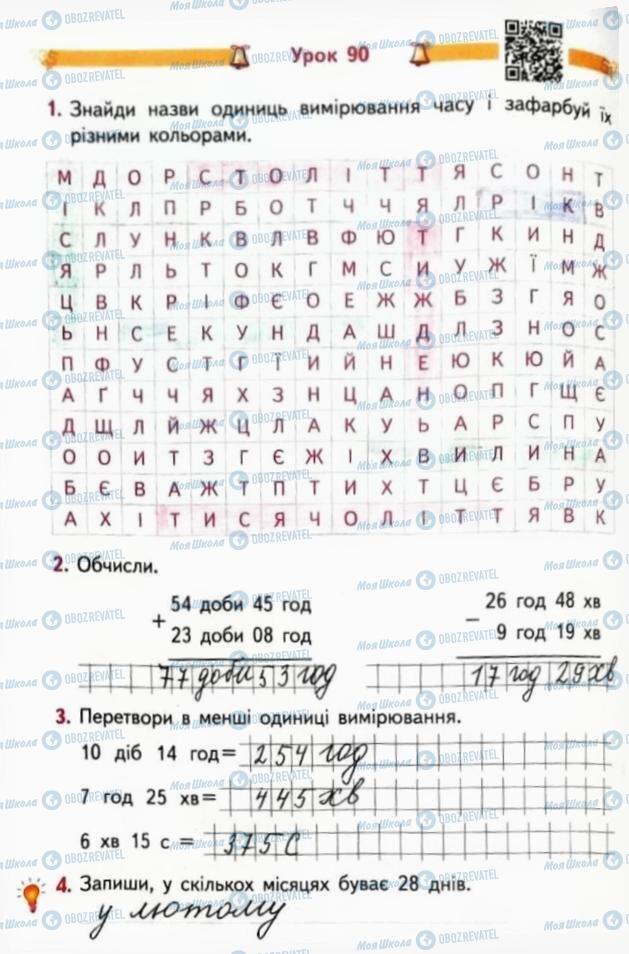 Урок 90
1. Знайди назви одиниць вимірювання часу і зафарбуй їх
різними кольорами.
М Д О Р С Т О Л І Т Т Я С О Н Т
І К Л П Р Б О Т Ч Ч Я Л Р І К В
С Л У Н К В Л В Ф Ю Т Г К И Н Д
Я Р Л Ь Т О К Г М С И У Ж Ї М Ж
Ц В К Р І Ф Є О Е Ж Ж Б З Г Я О
Ь Н С Е К У Н Д А Ш Д Л З Н О С
П Ф У С Т Г Ї И Й Н Е Ю К Ю Й А
А Ґ Ч Ч Я Х З Н Ц А Н О П Г Щ Є
Д Щ Л Й Ж Ц Л А К У Ь А Р С П У
О О И Т З Г Є Ж І Х В И Л И Н А
Б Є В А Ж Т П Т И Х Т Ц Є Б Р У
А Х І Т И С Я Ч О Л І Т Т Я В К
2. Обчисли.
+ 54 доби 45 год
23 доби 08 год
77 доби 53 год
− 26 год 48 хв
9 год 19 хв
17 год 29 хв
3. Перетвори в менші одиниці вимірювання.
10 діб 14 год = 254 год
7 год 25 хв = 445 хв
6 хв 15 с = 375 с
4. Запиши, у скількох місяцях буває 28 днів.
у лютому